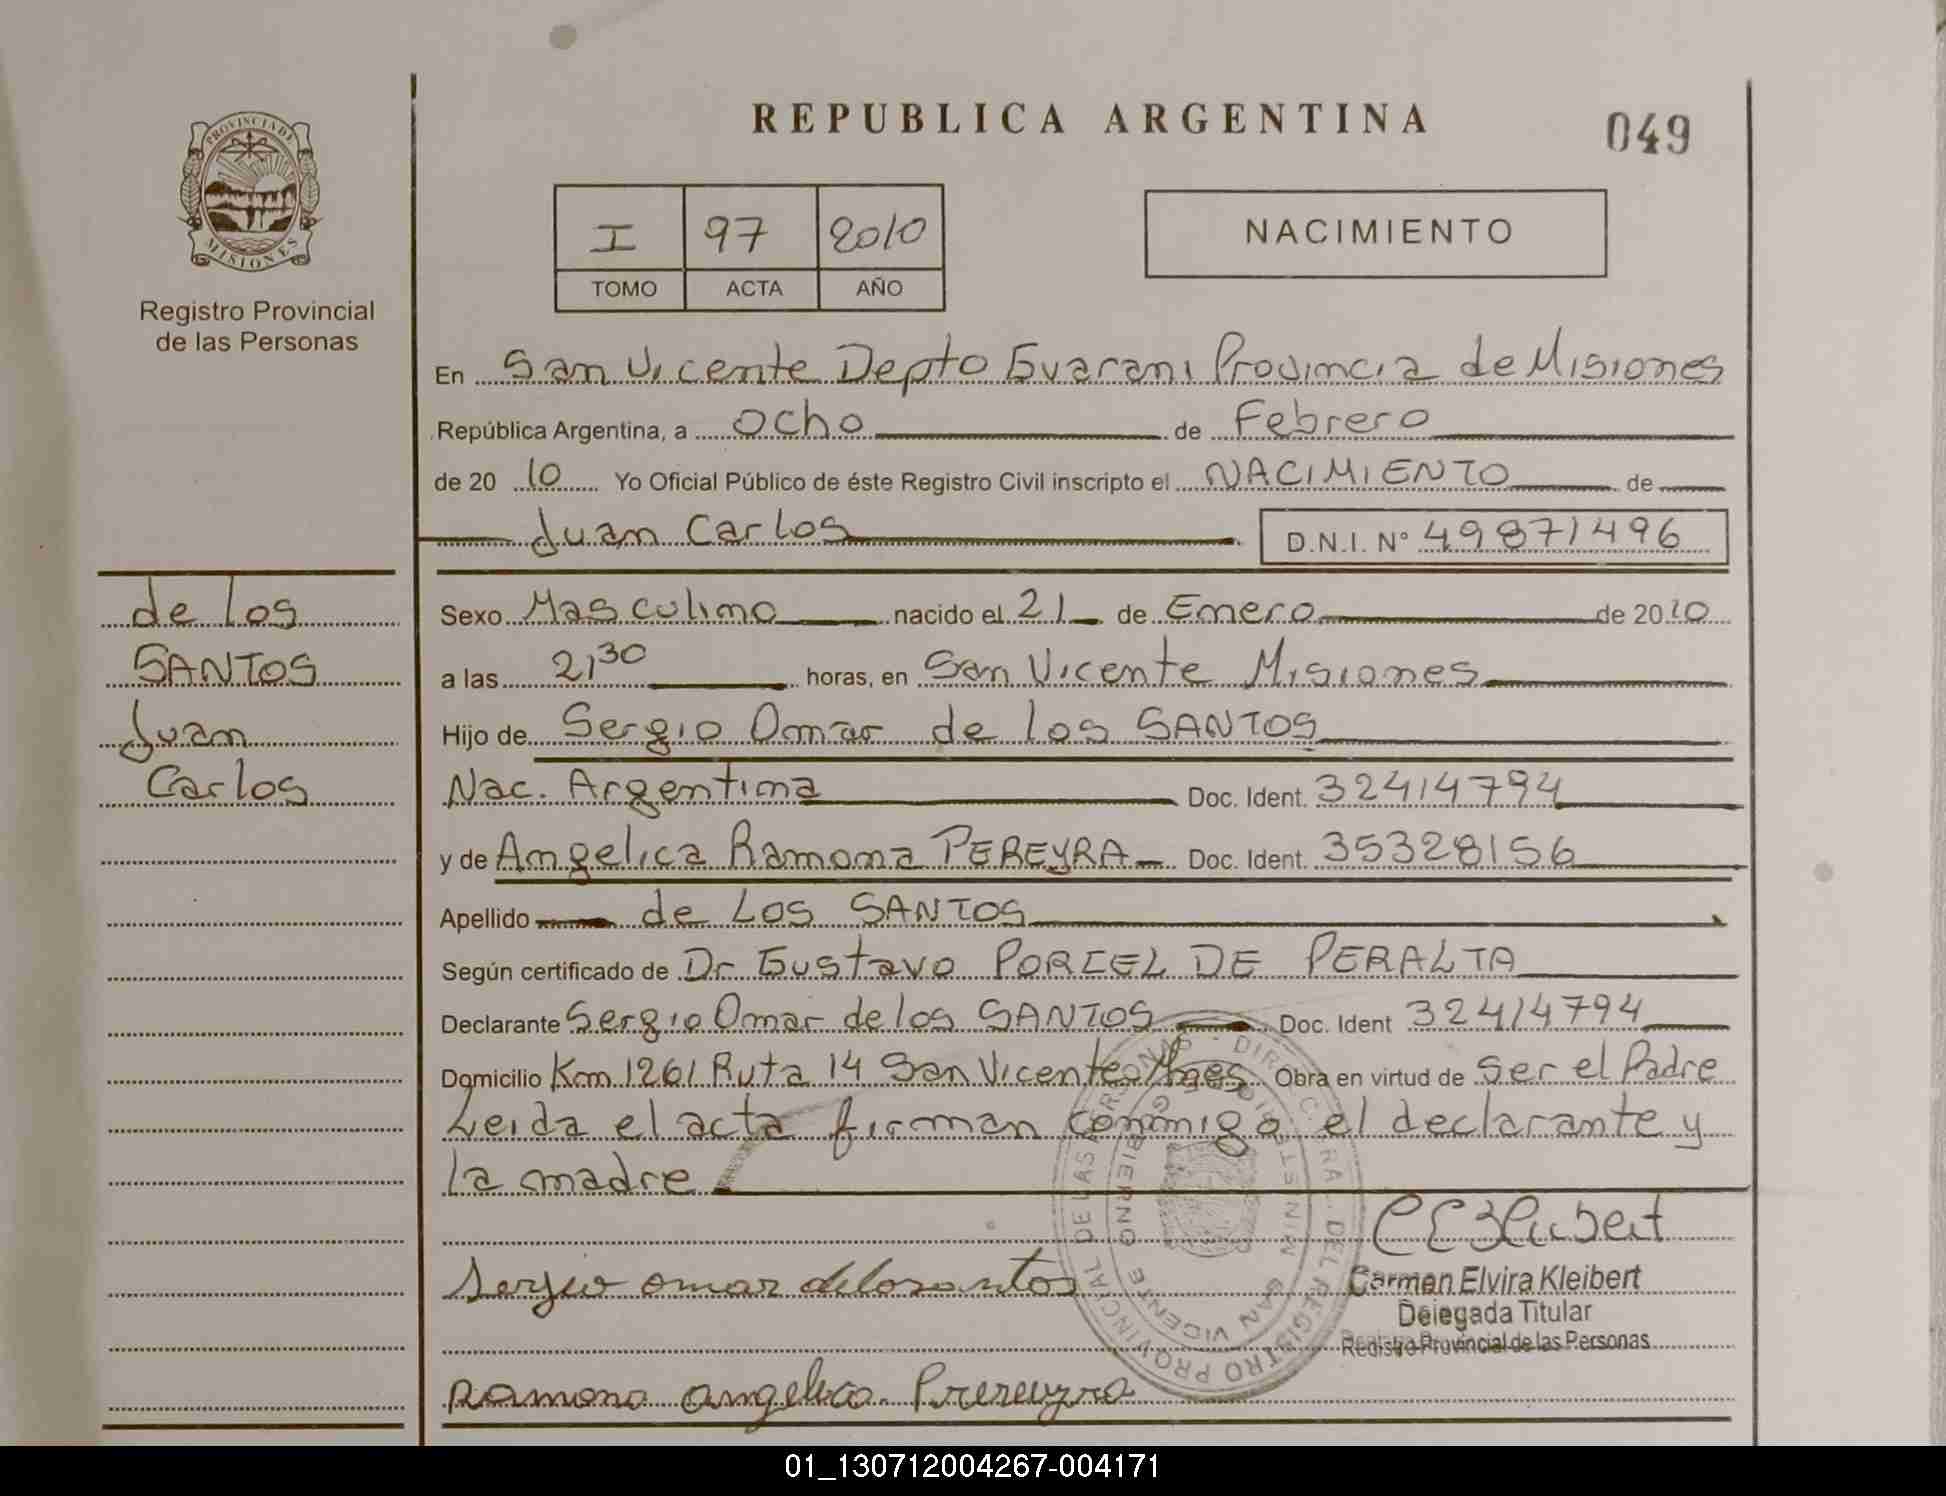 REPUBLICA ARGENTINA
049
PROVINCIA DE
MISIONES
Registro Provincial
de las Personas
I 97 2010
TOMO ACTA AÑO
NACIMIENTO
En San Vicente Depto Guarani Provincia de Misiones
República Argentina, a ocho de Febrero
de 20 10 Yo Oficial Público de éste Registro Civil inscripto el NACIMIENTO de
Juan Carlos
D.N.I. N° 49871496
de los
SANTOS
Juan
Carlos
Sexo Masculino nacido el 21 de Enero de 2010
a las 21,30 horas, en San Vicente Misiones
Hijo de Sergio Omar de los SANTOS
Nac. Argentina Doc. Ident. 32414794
y de Angelica Ramona PEREYRA Doc. Ident. 35328156
Apellido de LOS SANTOS
Según certificado de Dr Gustavo PORCEL DE PERALTA
Declarante Sergio Omar de los SANTOS Doc. Ident 32414794
Domicilio Km 1261 Ruta 14 San Vicente Mnes Obra en virtud de Ser el Padre
Leida el acta firman conmigo el declarante y
la madre
Sergio omar delosantos
Carmen Elvira Kleibert
Delegada Titular
Registro Provincial de las Personas
Ramona angelica
DEL REGISTRO PROVINCIAL DE LAS PERSONAS
SAN VICENTE
01_130712004267-004171